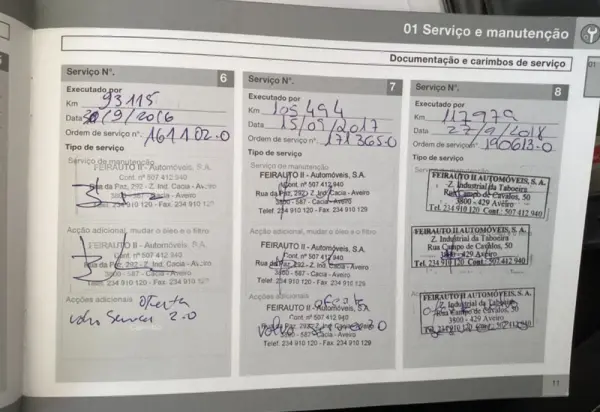 01 Serviço e manutenção
Documentação e carimbos de serviço
01
Serviço Nº.
6
Executado por
Km 93115
Data 30/9/2016
Ordem de serviço nº. 161102.0
Tipo de serviço
Serviço de manutenção
FEIRAUTO II - Automóveis, S.A.
Cont. nº 507 412 940
Rua da Paz, 292 - Z. Ind. Cacia - Aveiro
3800 - 587 - Cacia - Aveiro
Telef. 234 910 120 - Fax. 234 910 129
Acção adicional, mudar o óleo e o filtro
FEIRAUTO II - Automóveis, S.A.
Cont. nº 507 412 940
Rua da Paz, 292 - Z. Ind. Cacia - Aveiro
3800 - 587 - Cacia - Aveiro
Telef. 234 910 120 - Fax. 234 910 129
Acções adicionais oferta
volvo Service 2.0
Serviço Nº.
7
Executado por
Km 105494
Data 15/09/2017
Ordem de serviço nº. 171365.0
Tipo de serviço
Serviço de manutenção
FEIRAUTO II - Automóveis, S.A.
Cont. nº 507 412 940
Rua da Paz, 292 - Z. Ind. Cacia - Aveiro
3800 - 587 - Cacia - Aveiro
Telef. 234 910 120 - Fax. 234 910 129
Acção adicional, mudar o óleo e o filtro
FEIRAUTO II - Automóveis, S.A.
Cont. nº 507 412 940
Rua da Paz, 292 - Z. Ind. Cacia - Aveiro
3800 - 587 - Cacia - Aveiro
Telef. 234 910 120 - Fax. 234 910 129
Acções adicionais oferta
FEIRAUTO II - Automóveis, S.A.
Cont. nº 507 412 940
volvo Service 2.0
Rua da Paz, 292 - Z. Ind. Cacia - Aveiro
3800 - 587 - Cacia - Aveiro
Telef. 234 910 120 - Fax. 234 910 129
Serviço Nº.
8
Executado por
Km 117979
Data 27/9/2018
Ordem de serviço nº. 190613.0
Tipo de serviço
FEIRAUTO II AUTOMÓVEIS, S. A.
Z. Industrial da Taboeira
Rua Campo de Cavalos, 50
3800 - 429 Aveiro
Tel. 234 910 120 Cont.: 507 412 940
FEIRAUTO II AUTOMÓVEIS, S. A.
Z. Industrial da Taboeira
Rua Campo de Cavalos, 50
3800 - 429 Aveiro
Tel. 234 910 120 Cont.: 507 412 940
FEIRAUTO II AUTOMÓVEIS, S. A.
Z. Industrial da Taboeira
Rua Campo de Cavalos, 50
3800 - 429 Aveiro
Tel. 234 910 120 Cont.: 507 412 940
11